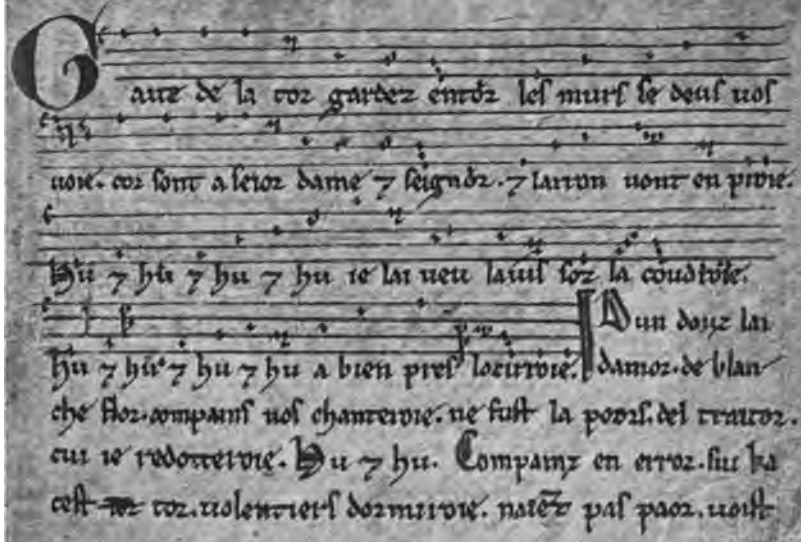 Gaite de la tor gardez entor les murs se deus uos
uoie. cor sont a seior dame ⁊ seignor. ⁊ larron uont en proie.
Hu ⁊ hu ⁊ hu ⁊ hu ie lai ueu laius soz la coudroie.
hu ⁊ hu ⁊ hu ⁊ hu a bien pres locirroie.
Dun douz lai
damor. de blan
che flor. compains uos chanteroie. ne fust la poors. del traitor.
cui ie redotteroie. Hu ⁊ hu. Compainz en error. sui ka
cest tor. uolentiers dormiroie. naiez pas paor. uoist